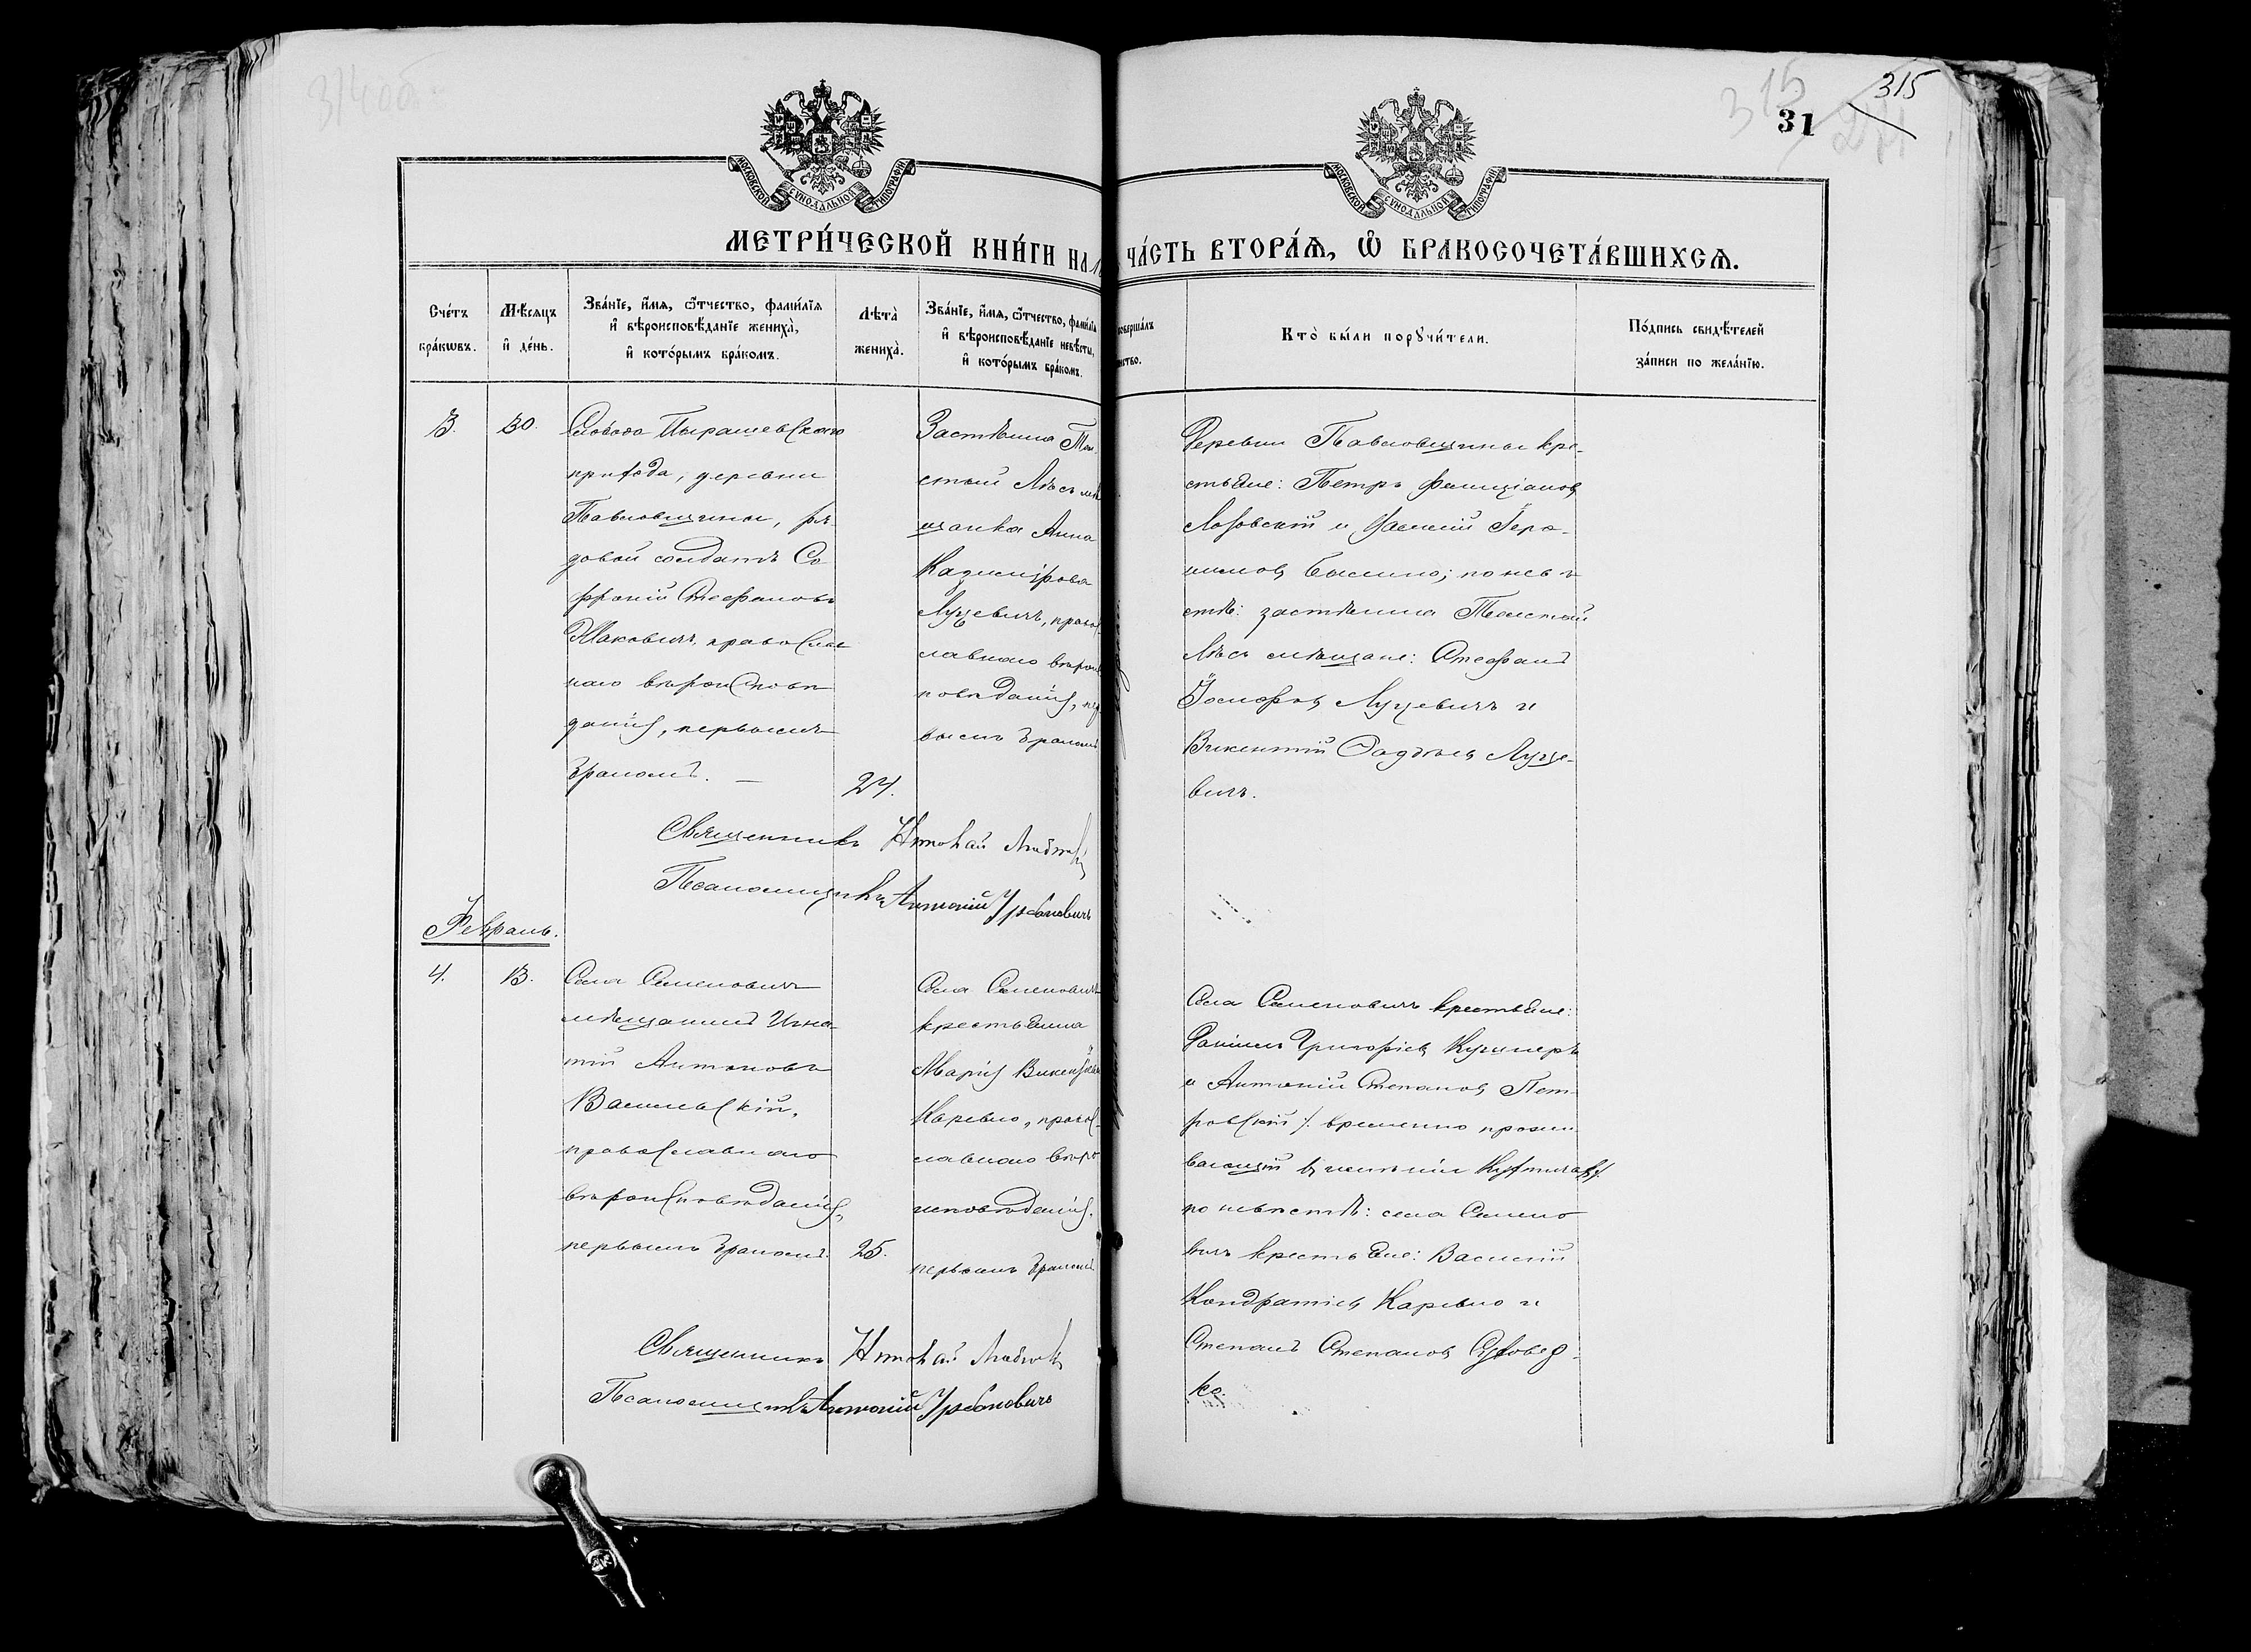 314 об
315
315
31
МОСКОВСКОЙ СѴНОДАЛЬНОЙ ТИПОГРАФІИ
МОСКОВСКОЙ СѴНОДАЛЬНОЙ ТИПОГРАФІИ
МЕТРИ́ЧЕСКОЙ КНИ́ГИ НА
ЧА́СТЬ ВТОРА́Ѧ, Ѽ БРАКОСОЧЕТА́ВШИХСѦ.
Сче́тъ бра́кωвъ.
Мѣ́сѧцъ и҆ де́нь.
Зва́нїе, и҆́мѧ, ѻ҆́тчество, фами́лїѧ и҆ вѣроисповѣ́данїе жениха̀, и҆ кото́рымъ бра́комъ.
Лѣта̀ жениха̀.
Зва́нїе, и҆́мѧ, ѻ҆́тчество, фами́лїѧ и҆ вѣроисповѣ́данїе невѣ́сты, и҆ кото́рымъ бра́комъ.
Кто̀ бы́ли порꙋчи́тели.
По́дпись свидѣ́телей за́писи по жела́нїю.
3.
30.
Слобода Пырашевскаго
прихода, деревни
Павловщины, ря
довой солдатъ Со
фроній Стефановъ
Жаковичъ, православ
наго вѣроисповѣ
данія, первымъ
бракомъ.
24.
Застѣнка
стый Лѣсъ мѣ
щанка Анна
Казимірова
Луцевичъ, правос
лавнаго вѣроис
повѣданія, пер
вымъ бракомъ
Деревни Павловщины кре-
стьяне: Петръ Фелиціановъ
Лозовскій и Василій Геро-
нимовъ Былино; по невѣ
стѣ: застѣнка Толстый
Лѣсъ мѣщане: Стефанъ
Іосифовъ Луцевичъ и
Викентій Фаддѣевъ Луце-
вичъ.
Священникъ Николай
Псаломщикъ Антоній Урбановичъ
Февраль.
4.
3.
Села Семеновичъ
мѣщанинъ Игна-
тій Антоновъ
Васильевскій,
православнаго
вѣроисповѣданія,
первымъ бракомъ.
25.
Села Семеновичъ
крестьянка
Марія Викентіева
Каревко, правос-
лавнаго вѣро
исповѣданія.
первымъ бракомъ
Села Семеновичъ крестьяне:
Даніилъ Григоріевъ Кушнеръ
и Антоній Степановъ Пет-
ровскій /: временно прожи
вающій въ имѣніи
по невѣстѣ: села Семено
вичъ крестьяне: Василій
Кондратіевъ Каревко и
Степанъ Степановъ
ко.
Священникъ Николай
Псаломщикъ Антоній Урбановичъ